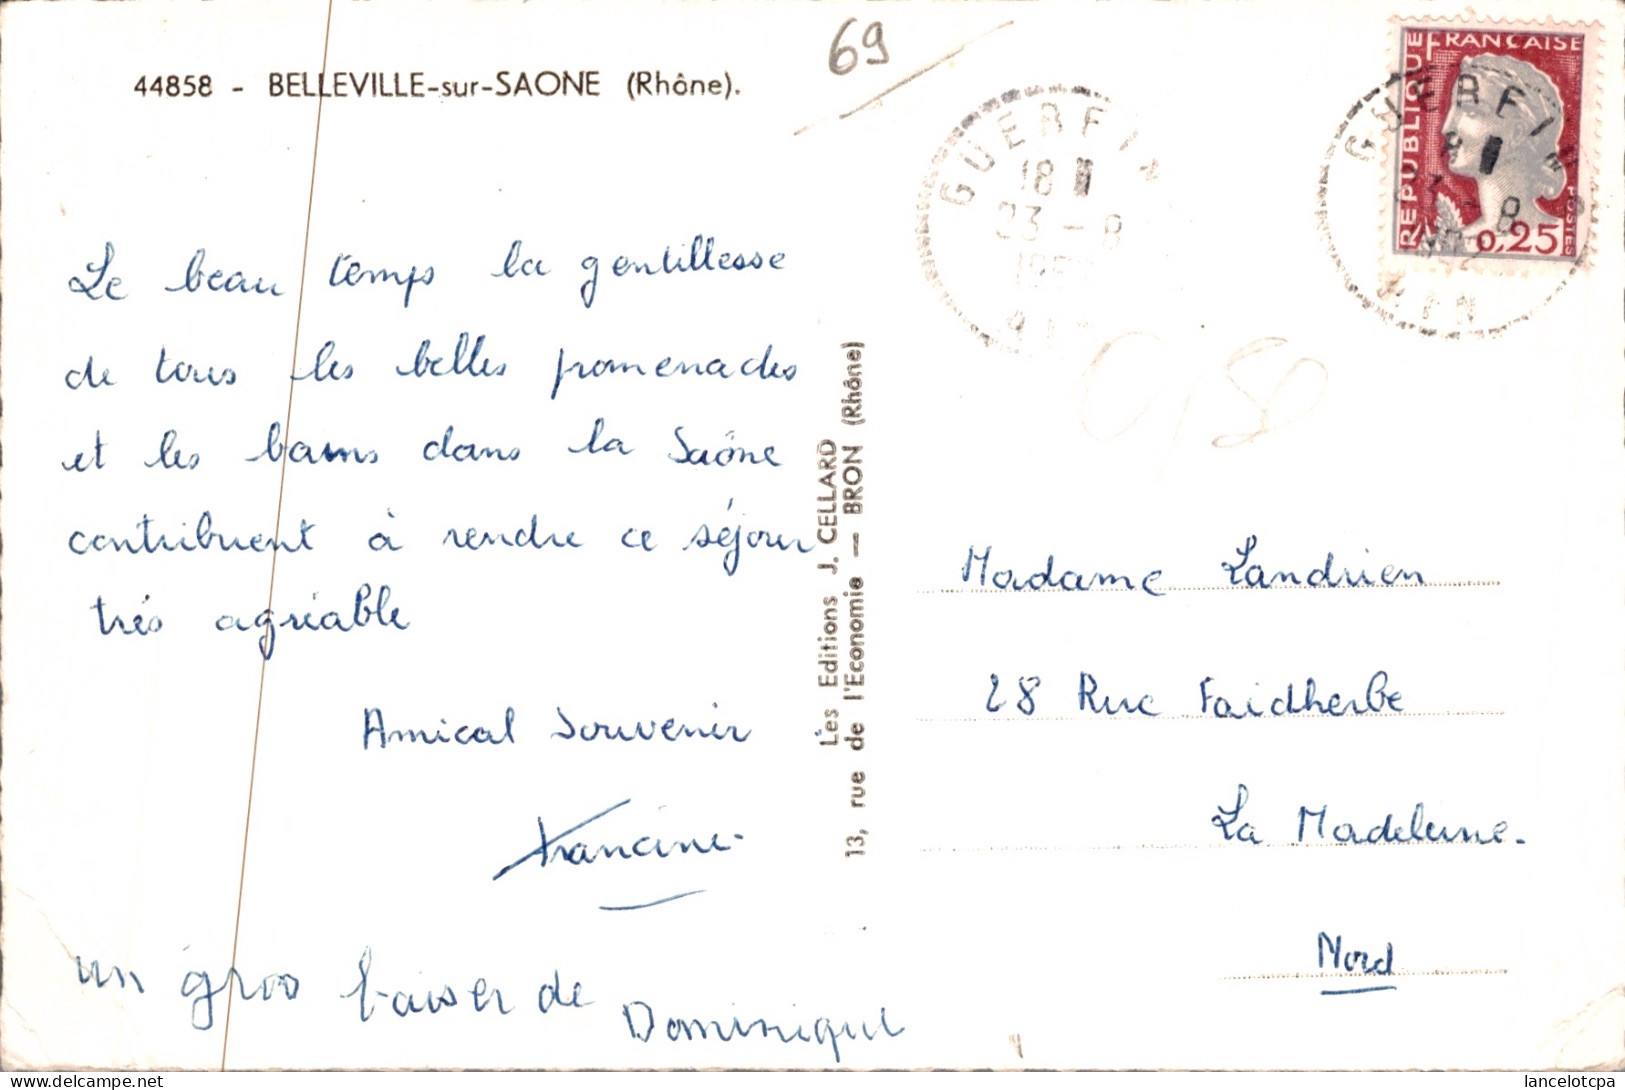 44858 - BELLEVILLE-sur-SAONE (Rhône).
69
Le beau temps la gentillesse
de tous les belles promenades
et les bains dans la Saône
contribuent à rendre ce séjour
très agréable
Amical Souvenir
Francine
un gros baiser de
Dominique
Les Editions J. CELLARD
13, rue de l'Economie — BRON (Rhône)
GUERFIN
18
23 - 8
AIN
REPUBLIQUE FRANÇAISE
POSTES
0,25
GUERFIN
- 8
AIN
Madame Landrien
28 Rue Faidherbe
La Madeleine.
Nord
delcampe.net
lancelotcpa